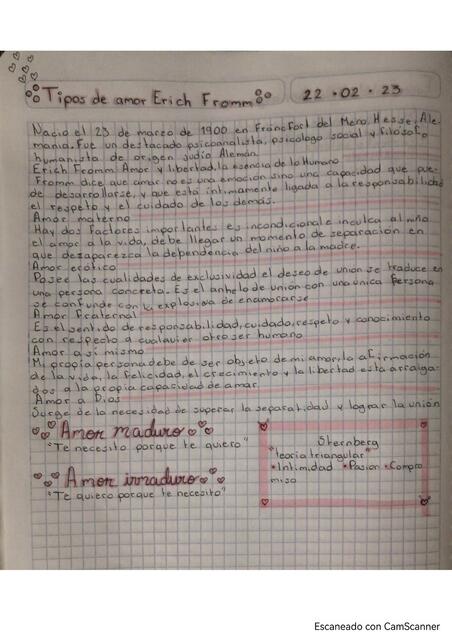 Tipos de amor Erich Fromm
22 • 02 • 23
Nacio el 23 de marzo de 1900 en Francfort del Meno, Hesse, Ale
mania. Fue un destacado psicoanalista, psicologo social y filosofo
humanista de origen judío Alemán.
Erich Fromm Amor y libertad, la esencia de lo Humano
Fromm dice que amar no es una emoción sino una capacidad que pue-
de desarrollarse, y que está intimamente ligada a la responsabilidad
el respeto y el cuidado de los demás.
Amor materno
Hay dos factores importantes es incondicional e inculca al niño
el amor a la vida, debe llegar un momento de separación en
que desaparezca la dependencia del niño a la madre.
Amor erótico
Posee las cualidades de exclusividad el deseo de unión se traduce en
una persona concreta. Es el anhelo de unión con una única persona
se confunde con la explosiva de enamorarse
Amor fraternal
Es el sentido de responsabilidad, cuidado, respeto y conocimiento
con respecto a cualquier otro ser humano
Amor a si mismo
Mi propia persona debe de ser objeto de mi amor, la afirmación
de la vida, la felicidad, el crecimiento y la libertad esta arraiga-
dos a la propia capacidad de amar
Amor a Dios
Surge de la necesidad de superar la separatidad y lograr la unión
Amor maduro
"Te necesito porque te quiero"
Amor inmaduro
"Te quiero porque te necesito"
Sternberg
"Teoria triangular"
•Intimidad •Pasion •Compro
miso
Escaneado con CamScanner